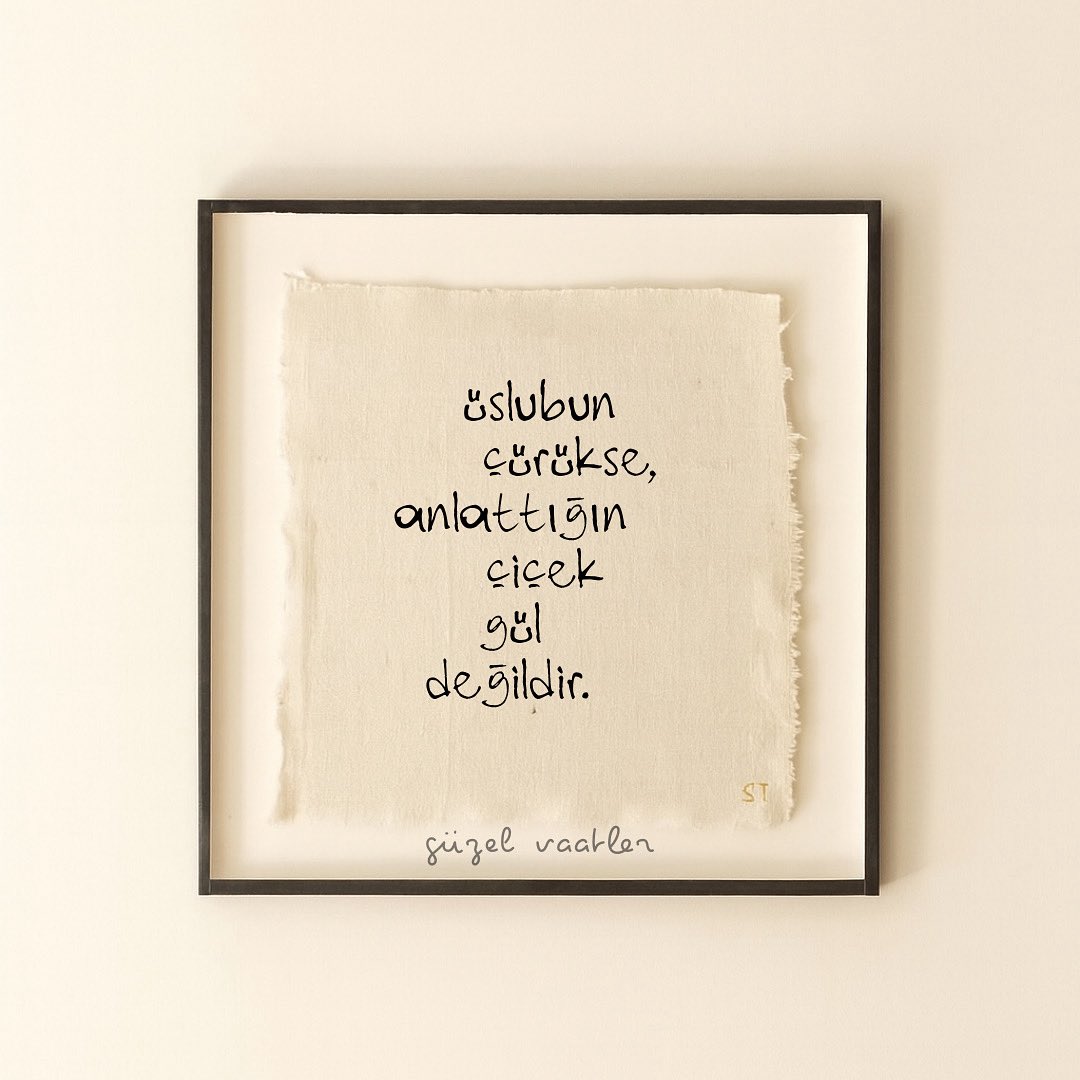 üslubun
çürükse,
anlattığın
çiçek
gül
değildir.
ST
güzel vaatler